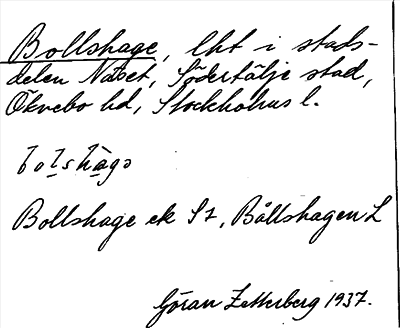 Bollshage, lht i stads-
delen Näset, Södertälje stad,
Öknebo hd, Stockholms l.
Bollshage ek S7, Bållshagen L
Göran Zetterberg 1937.